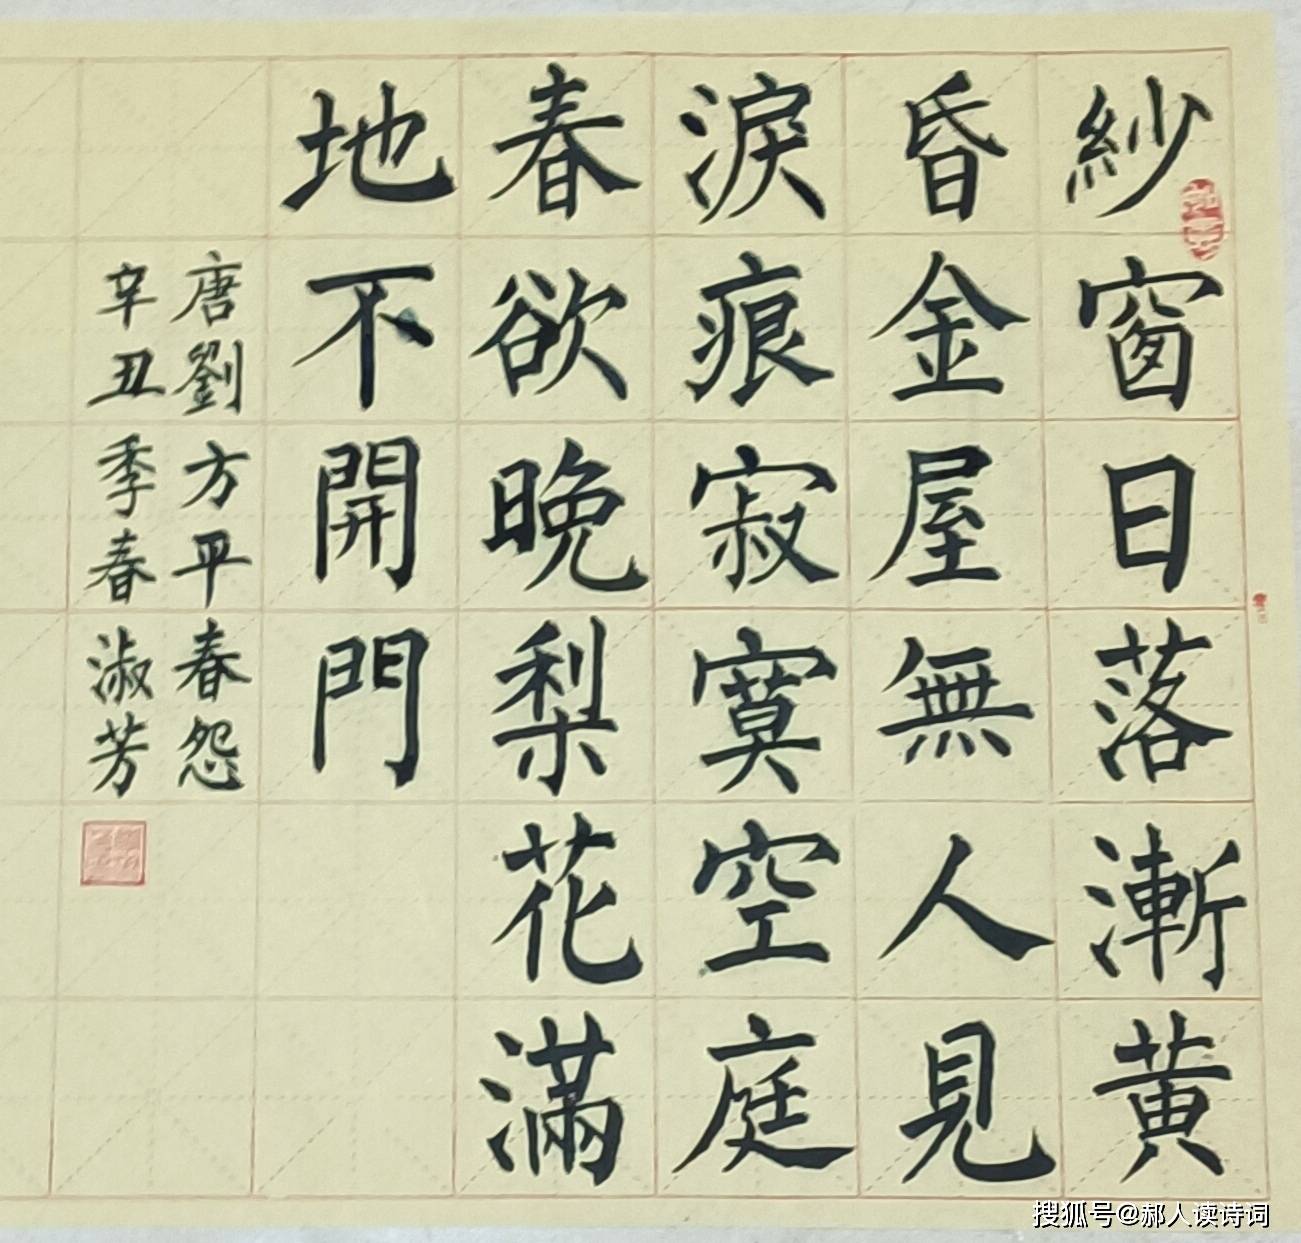 紗窗日落漸黃
昏金屋無人見
淚痕寂寞空庭
春欲晚梨花滿
地不開門
唐劉方平春怨
辛丑季春淑芳
搜狐号@郝人读诗词